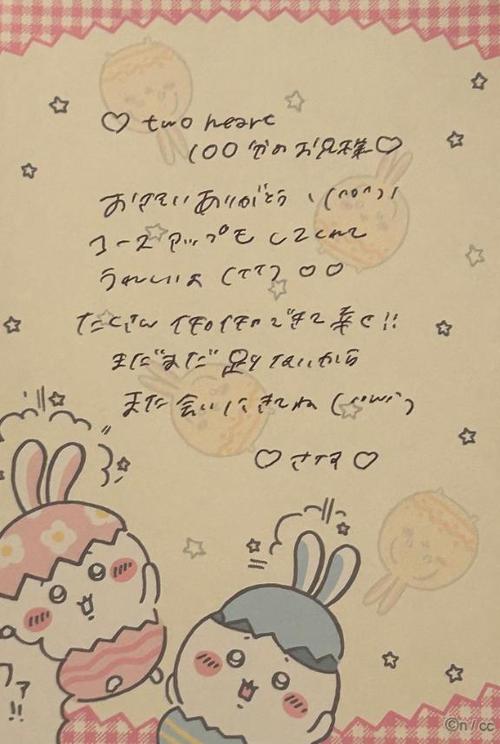 ♡ two heart
100分のお兄様♡
おさそいありがとう ! (^o^) !
コースアップもしてくれて
うれしいよ (TTT) ♡♡
たくさん イチャイチャできて幸せ!!
まだまだ足りないから
また会いにきてね (*'ω'*)
♡ さする ♡
!!
©n/cc